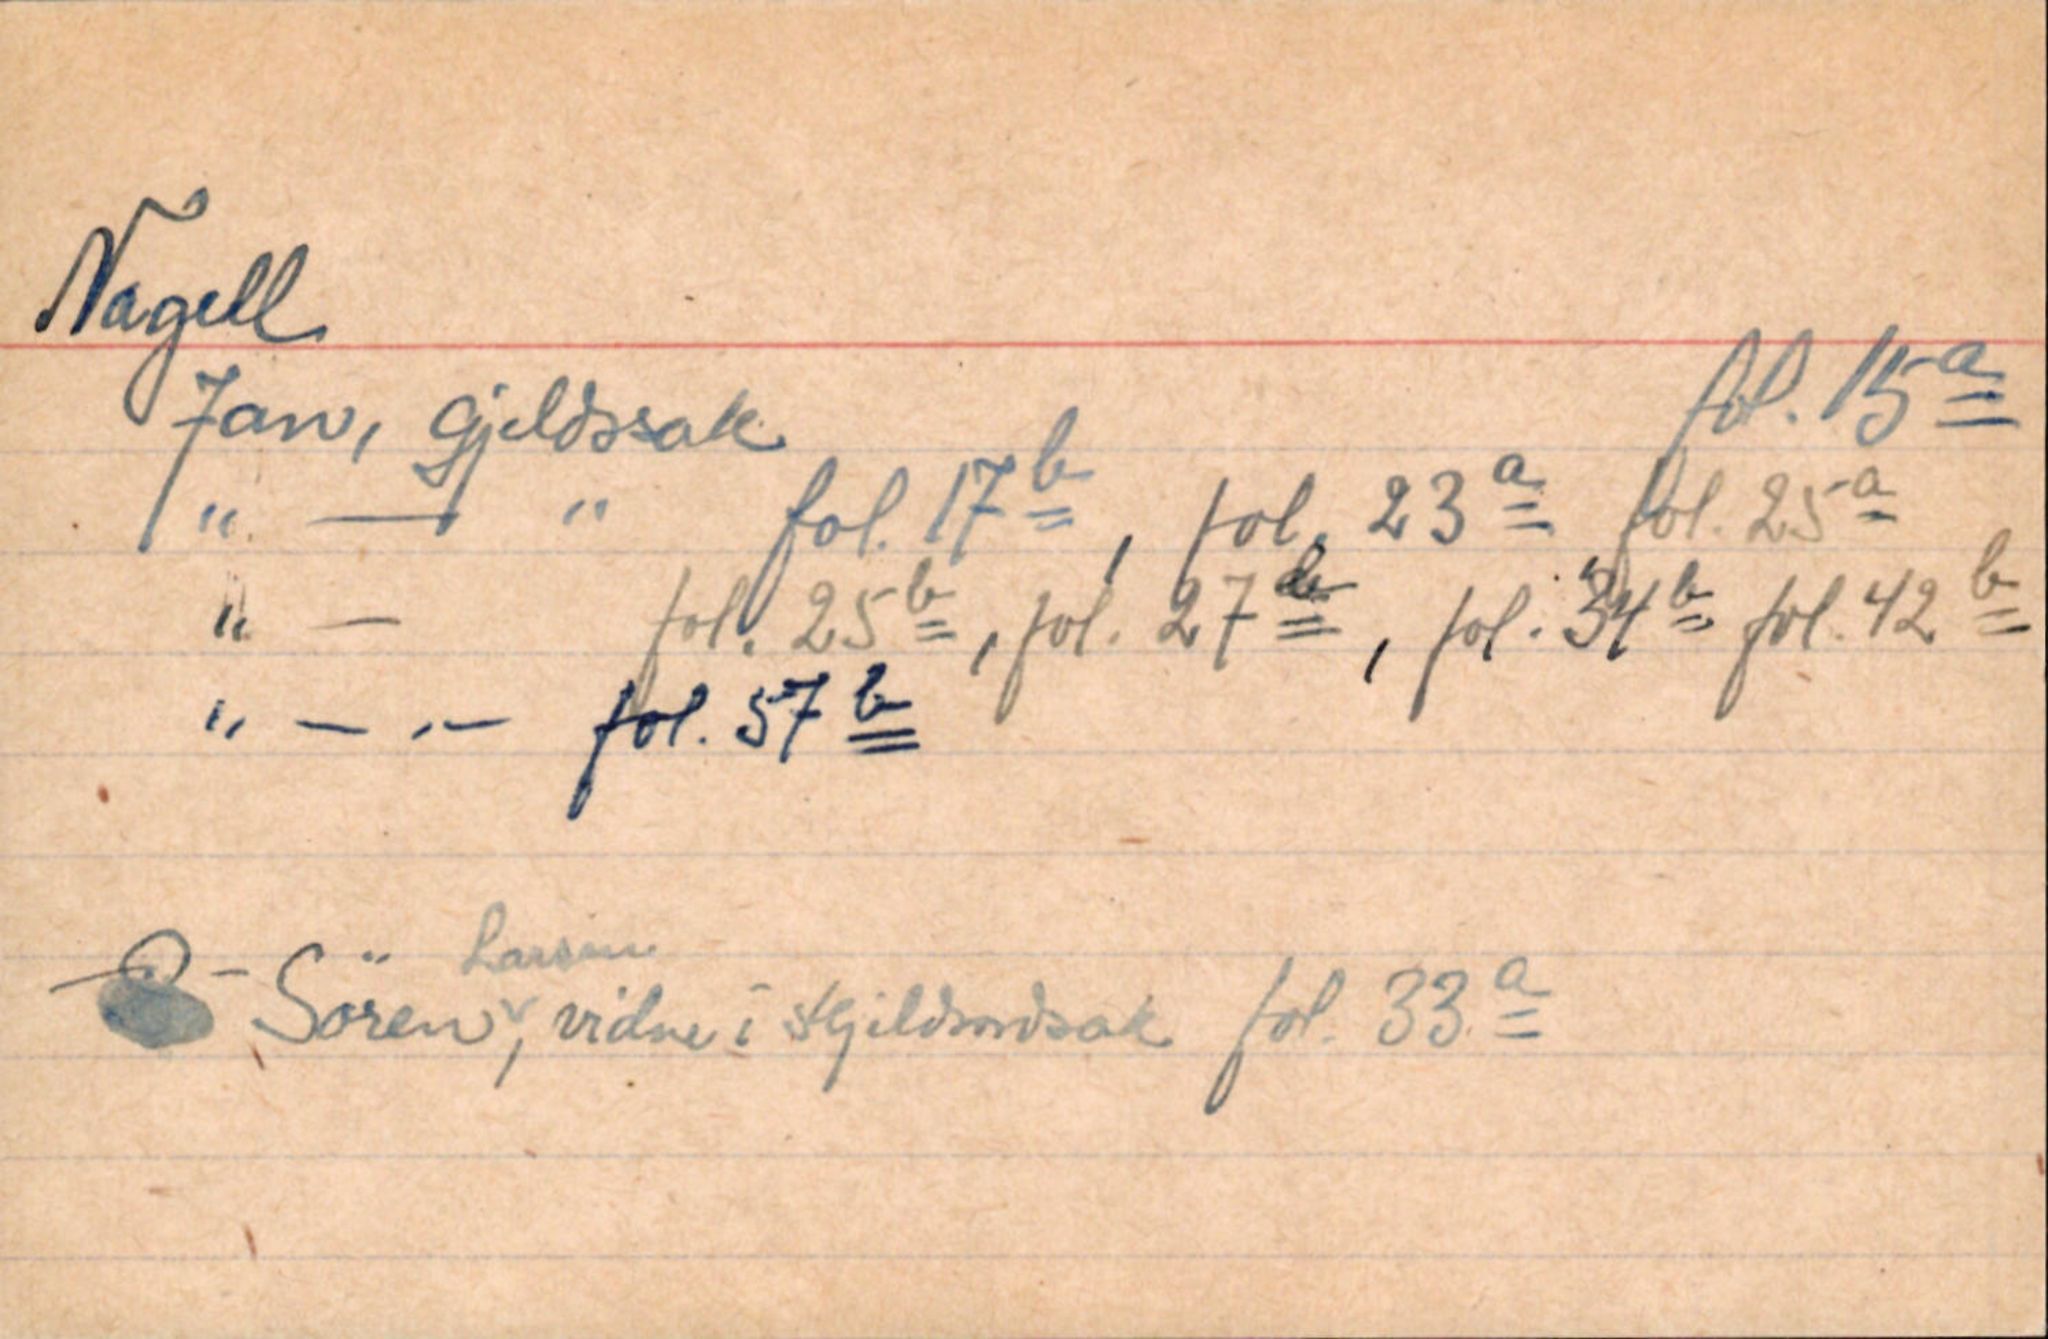 Nagell
Jan, Gjeldssak fol. 15a
" — " fol. 17b, fol. 23a fol. 25a
" — fol. 25b, fol. 27b, fol. 34b fol. 42b
" — " — fol. 57b
Larsen
— Sören ˅, vidne i skjeldsordsak fol. 33a